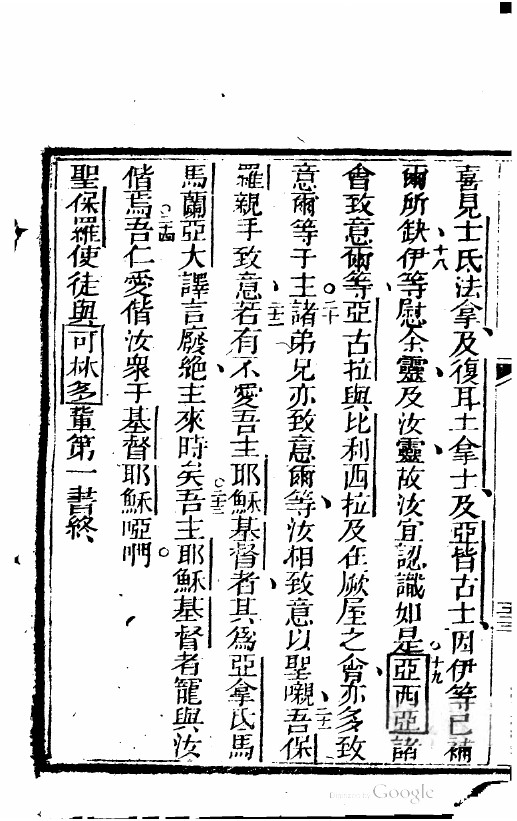 喜見士氏法拿及復耳土拿士及亞皆古士因伊等已補
爾所缺十八伊等慰余靈及汝靈故汝宜認識如是十九亞西亞諸
會致意爾等亞古拉與比利西拉及在厥屋之會亦多致
意爾等于主二十諸弟兄亦致意爾等汝相致意以聖嚫二一吾保
羅親手致意二二若有不愛吾主耶穌基督者其為亞拿氏馬
馬蘭亞大譯言廢絶主來時矣二三吾主耶穌基督者寵與汝
偕焉二四吾仁愛偕汝衆于基督耶穌啞們
聖保羅使徒與可林多輩第一書終
Google